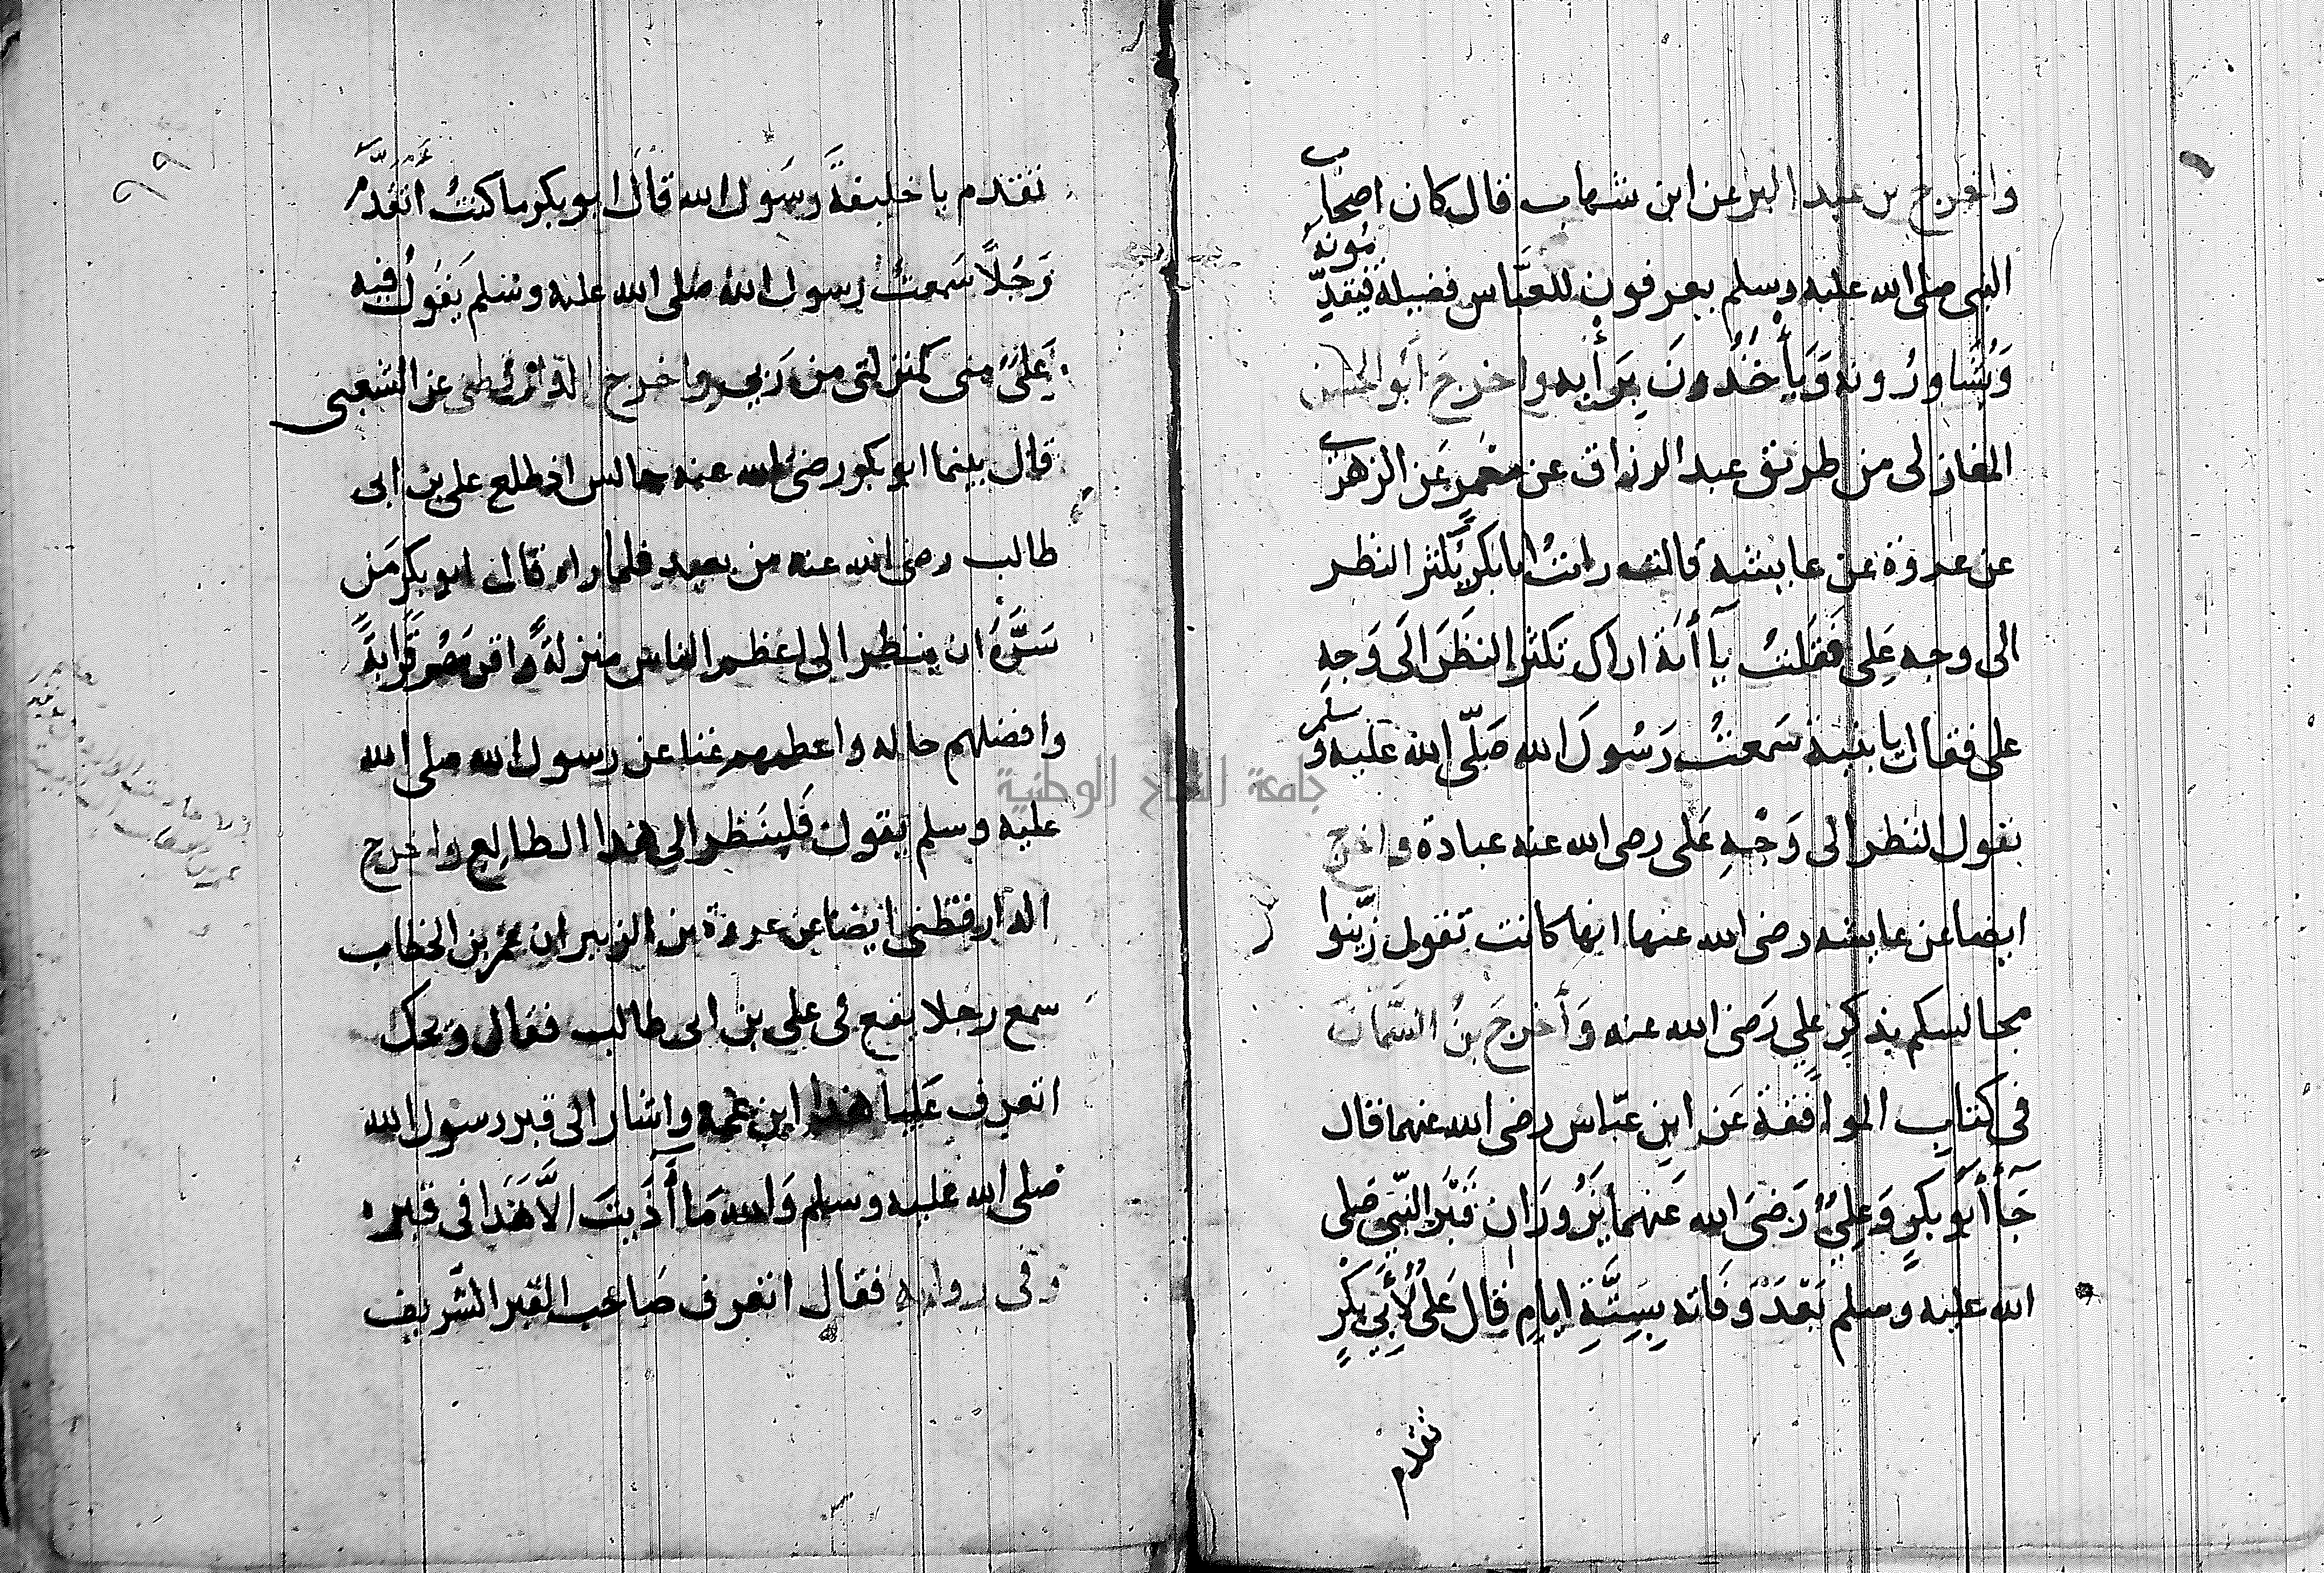 واخرج بن عبد البر عن ابن شهاب قال كان اصحاب
النبى صلى الله عليه وسلم يعرفون للعبّاس فضيلة فيقدّمونه
وَيُشاورُونه وَيأْخُذُونَ بِرَأْيه واخرجَ أبو الحسن
المغازلى من طريق عبد الرزاق عن معْمرٍ عَن الزهرى
عن عروة عن عايشه قالت رايتُ ابا بكرٍ يُكثر النظر
الى وجه عَلِى فَقلتُ يآ أبَة اراك تكثر النظَرَ الَى وَجهِ
على فقال يا بنية سَمعتُ رَسُولَ الله صَلّى الله عليه وسلم
يقول النظر الى وَجْهِ عَلى رضى الله عنه عبادة واخرج
ايضا عن عايشه رضى الله عنها انها كانت تقول زيّنوا
مجالسكم بذكِرِ علِي رَضى الله عنه وَأخرجَ بنُ السَّمان
فى كتابِ الموافقة عَن ابنِ عبّاس رضى الله عنهما قال
جَآ أبُو بكرٍ وَعلِىٌ رَضىَ الله عَنهما يَزُورَانِ قَبْرَ النّبِي صَلى
الله عليه وسلم بَعْدَ وَفاته بِسِتَّةِ ايامٍ قال عَلىٌ لأَبِى بَكْرٍ
تقدم
تقدم يا خليفةَ رسَول الله قالَ ابو بكر ما كنتُ أتقَدَّمُ
رَجُلًا سَمعتُ رسول الله صلى الله عليه وسلم يَقولُ فيه
عَلىٌ منى كمنزلتى من رَبى واخرج الدارقطنى عن الشعبى
قال بينما ابو بكر رضى الله عنه جالس اذ طلع على بن ابى
طالب رضى الله عنه من بعيد فلما راه قال ابو بكر مَن
سَرَّهُ ان ينظر الى اعظم الناس منزلةً واقربَهُم قَرابَةً
وافضلهم حاله واعظمهم غنا عن رسول الله صلى الله
عليه وسلم يقول فَلينَظر الى هَذا الطالِع واخرج
الدارقطنى ايضا عن عروة بن الزبير ان عمر بن الخطاب
سمع رجلا يقع فى على بن ابى طالب فقال ويحك
اتعرف عَليا هَذا ابن عَمه واشار الى قبر رسول الله
صلى الله عليه وسلم وَالله مَا أَذَيتَ الاَّ هَذا فى قبره
وفى رواية فقال اتعرف صَاحب القبر الشّريف
جامعة النجاح الوطنية